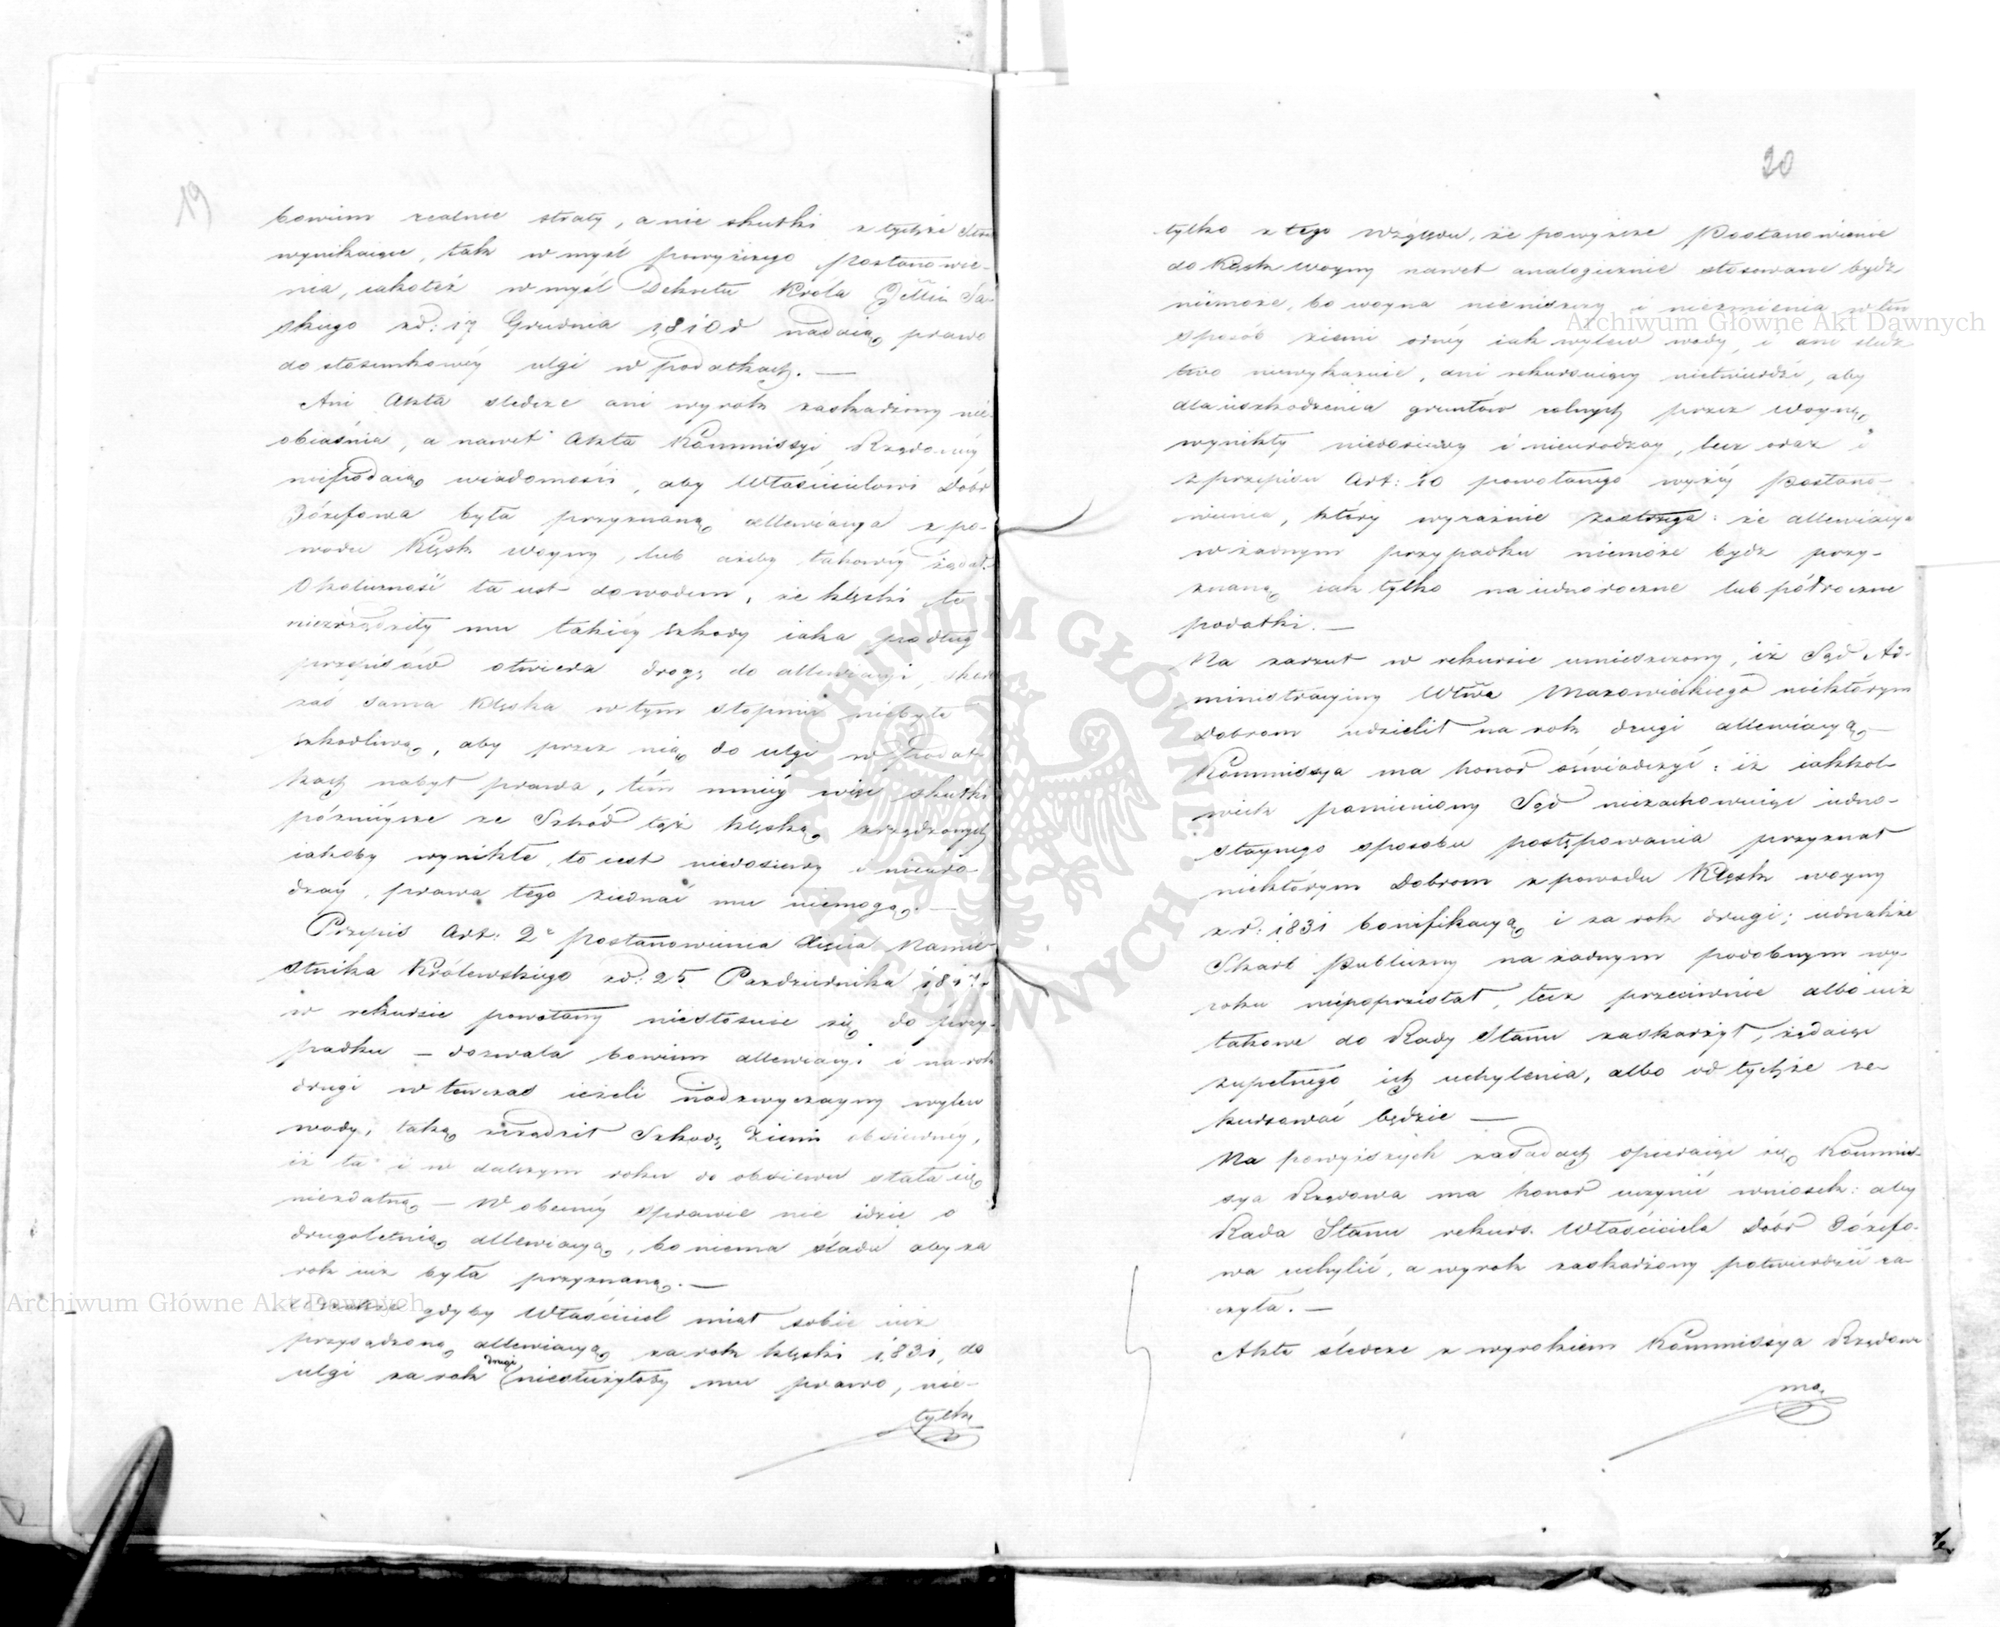 19
bowiem realne straty, a nie skutki z tychże strat
wynikaiące, tak w myśl powyższego postanowie-
nia, iakoteż w myśl Dekretu Króla JMci Sa-
skiego z d: 17 Grudnia 1810 r nadaią prawo
do stosunkowéy ulgi w podatkach. —
Ani Akta śledcze ani wyrok zaskarżony nie-
obiaśnia, a nawet Akta Kommissyi Rządowéy
niepodaią wiadomości, aby Właścicielowi Dóbr
Józefowa była przyznaną allewiacya z po-
wodu klęsk woyny, lub ażeby takowéy żądał.
Okoliczność ta iest dowodem, że klęski te
niezrządziły mu takiéy szkody iaka podług
przepisów otwiera drogę do allewiacyi, skoro
zaś sama klęska w tym stopniu niebyła
szkodliwą, aby przez nią do ulgi w podat-
kach nabył prawa, tém mniéy więc skutki
późniéysze ze szkód tąż klęską zrządzonych
iakoby wynikłe, to iest niedosiewy i nieuro-
dzay, prawa tego ziednać mu niemogą. —
Przepis Art: 2º postanowienia Xięcia Namie-
stnika Królewskiego z d: 25 Października
w rekursie powołany niestosuie się do przy-
padku — dozwala bowiem allewiacyi i na rok
drugi w ten czas ieżeli nadzwyczayny wylew
wody, taką zrządził szkodę ziemi obsiewnéy,
iż ta i w dalszym roku do obsiewu stała się
niezdatną — W obecnéy sprawie nie idzie o
drugoletnią allewiacyą, bo niema śladu aby za
rok iuż była przyznaną. —
gdyby Właściciel miał sobie iuż
przysądzoną allewiacyą za rok klęski 1831, do
ulgi za rok drugi niesłużyłoby mu prawo, nie-
tylko
20
tylko z tego względu, że powyższe Postanowienie
do klęsk woyny nawet analogicznie stosowane bydź
niemoże, bo woyna nieniszczy i niezmienia w ten
sposób ziemi ornéy iak wylew wody, i ani śledz
two niewykazuie, ani rekursuiący nietwierdzi, aby
dla uszkodzenia gruntów rolnych przez woynę,
wynikły niedosiewy i nieurodzay, lecz oraz i
z przepisu Art: 10 powołanego wyżéy Postano-
wienia, który wyraźnie zastrzega: że allewiacya
w żadnym przypadku niemoże bydź przy-
znaną iak tylko na iednoroczne lub półroczne
podatki. —
Na zarzut w rekursie umieszczony, iż Sąd Ad-
ministracyiny Wtwa Mazowieckiego niektórym
Dobrom udzielił na rok drugi allewiacyą
Kommissya ma honor oświadczyć: iż iakkol-
wiek pomieniony Sąd niezachowuiąc iedno-
staynego sposobu postępowania przyznał
niektórym Dobrom z powodu klęsk woyny
z r: 1831 bonifikacyą i za rok drugi; iednakże
Skarb Publiczny na żadnym podobnym wy-
roku niepoprzestał, lecz przeciwnie albo iuż
takowe do Rady Stanu zaskarżył, żądaiąc
zupełnego ich uchylenia, albo od tychże re-
kursować będzie —
Na powyższych zasadach opieraiąc się Kommis-
sya Rządowa ma honor uczynić wniosek: aby
Rada Stanu rekurs Właściciela Dóbr Józefo-
wa uchylić, a wyrok zaskarżony potwierdzić ra-
czyła. —
Akta śledcze z wyrokiem Kommissya Rządowa
ma